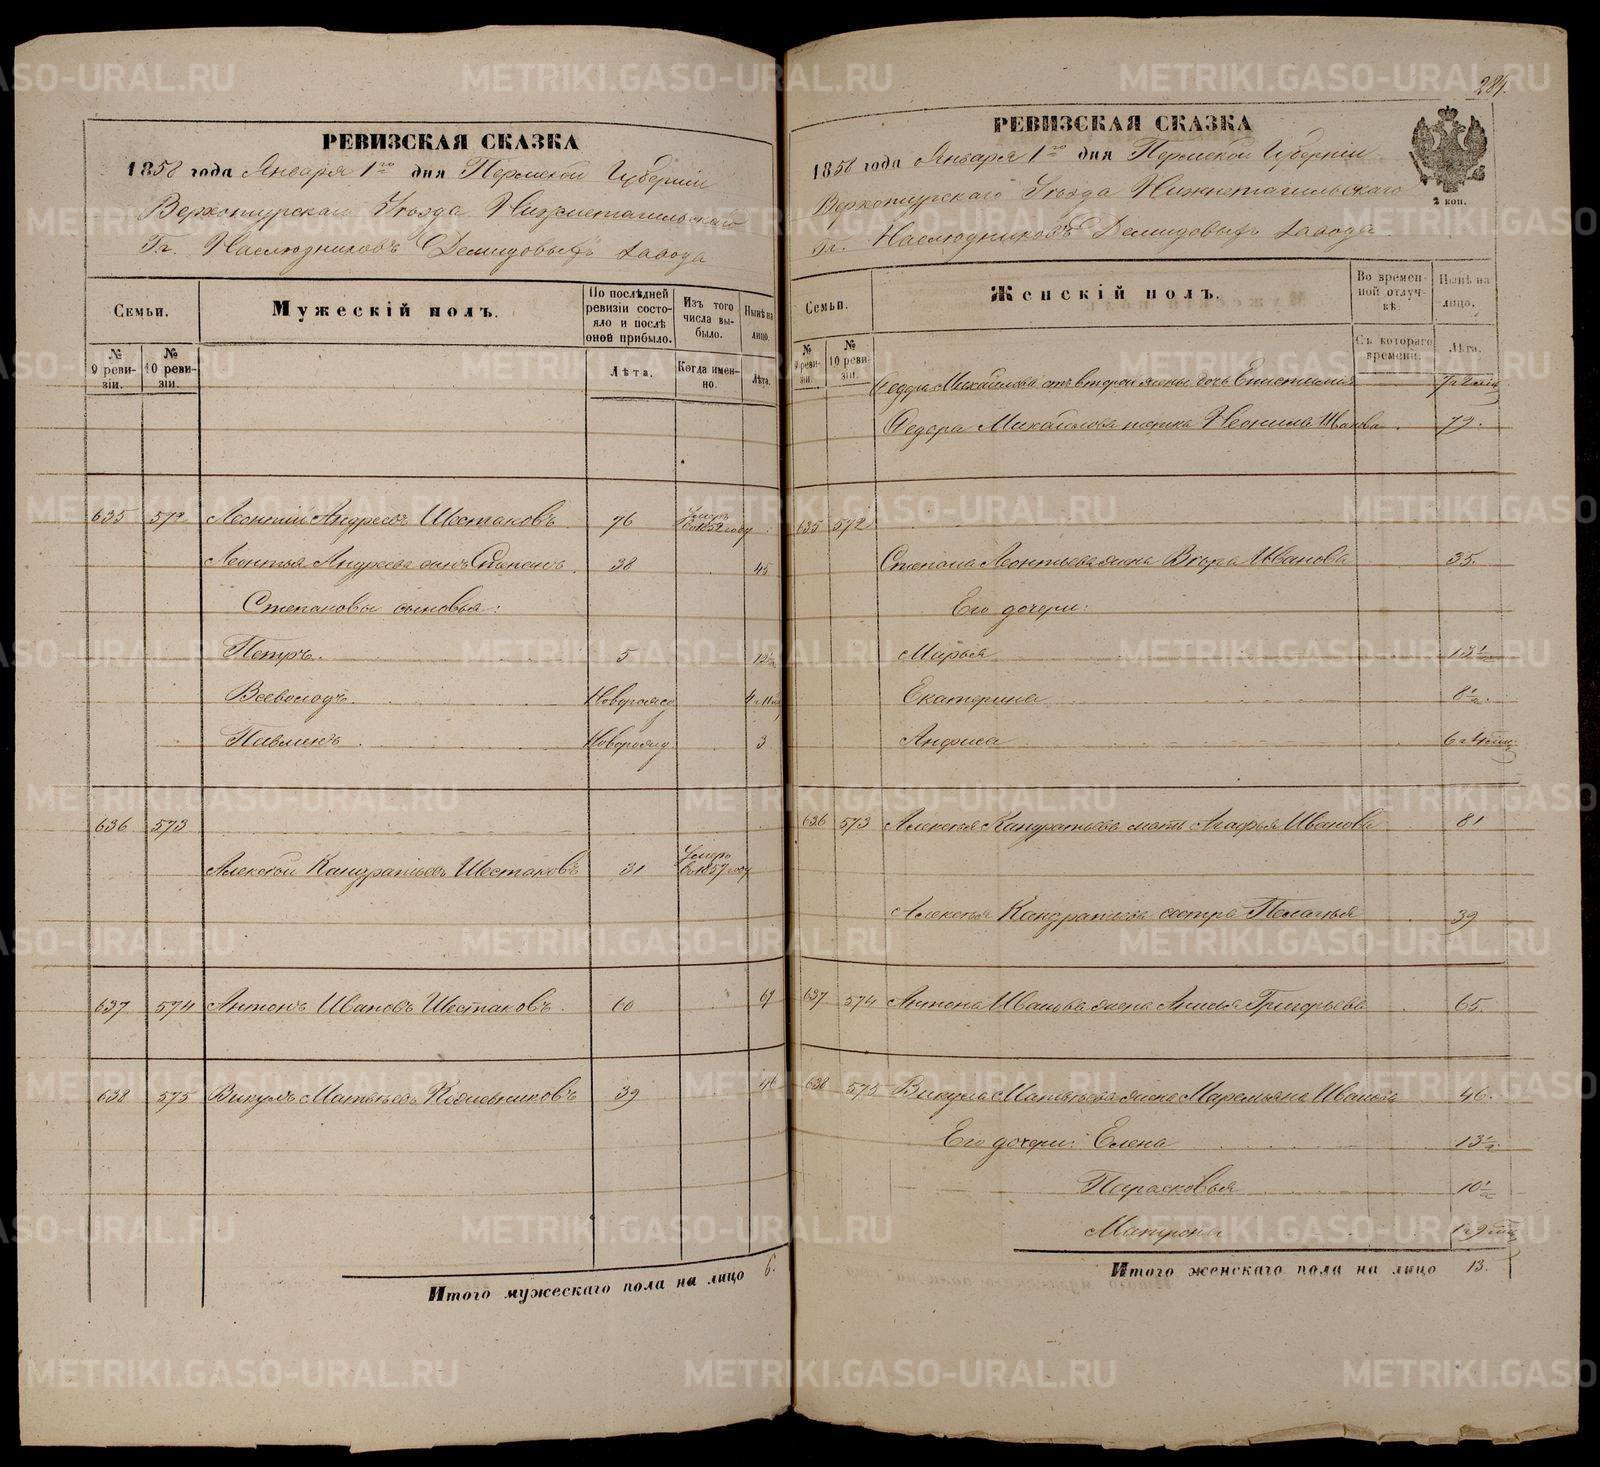 РЕВИЗСКАЯ СКАЗКА
1858 года Января 1го дня Пермской Губерніи
Верхотурскаго Уѣзда Нижнетагильскаго
Гг. Наслѣдниковъ Демидовыхъ завода
Семьи.
Мужескій полъ.
По послѣдней ревизіи состояло и послѣ оной прибыло.
Изъ того числа выбыло.
Нынѣ на лицо.
№ 9 ревизіи.
№ 10 ревизіи.
Лѣта.
Когда именно.
Лѣта.
635 572 Леонтій Андреевъ Шестаковъ 76 Умеръ въ 1852 году
Леонтья Андреева сынъ Степанъ 38 45
Степановы сыновья:
Петръ 5 12½
Всеволодъ Новорожд 4 г 11 м
Павлинъ Новорожд. 3
636 573
Алексѣй Кандратьевъ Шестаковъ 31 Умеръ въ 1857 году
637 574 Антонъ Ивановъ Шестаковъ 60 67
638 575 Викулъ Матвѣевъ 39 46
Итого мужескаго пола на лицо 6.
284.
РЕВИЗСКАЯ СКАЗКА
1858 года Января 1го дня Пермской Губерніи
Верхотурскаго Уѣзда Нижнетагильскаго
Гг. Наслѣдниковъ Демидовыхъ завода
2 коп.
Семьи.
Женскій полъ.
Во временной отлучкѣ.
Нынѣ на лицо.
№ 9 ревизіи.
№ 10 ревизіи.
Съ котораго времени.
Лѣта.
Федора Михайлова отъ второй жены дочь Епистимья 7 г 2 мѣц
Федора Михайлова тетка Неонила Иванова 79.
635 572
Степана Леонтьева жена Вѣра Иванова 35.
Его дочери:
Марья 13½
Екатерина 8½.
Анфиса 6 г 4 мѣц.
636 573 Алексѣя Кандратьева мать Агафья Иванова 81
Алексѣя Кандратьева сестра Пелагѣя 39
637 574 Антона Иванова жена Анисья Григорьева 65.
638 575 Викула Матвѣева жена Маремьяна Иванова 46.
Его дочери: Елена 13½.
Парасковья 10½
Матрона 1 г 9 мѣц
Итого женскаго пола на лицо 13.
METRIKI.GASO-URAL.RU